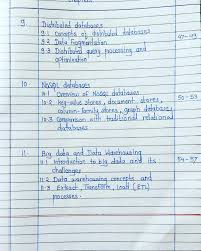 9 Distributed databases
9.1 Concepts of distributed databases 47-49
9.2 Data Fragmentation
9.3 Distributed query processing and
optimization
10 NoSQL databases
10.1 Overview of NoSQL databases 50-53
10.2 key-value stores, document stores,
column-family stores, graph databases
10.3 Comparison with traditional relational
databases
11 Big data and Data Warehousing
11.1 Introduction to big data and its 54-57
challenges
11.2 Data warehousing concepts and
processes
11.3 Extract, Transform, Load (ETL)
processes.